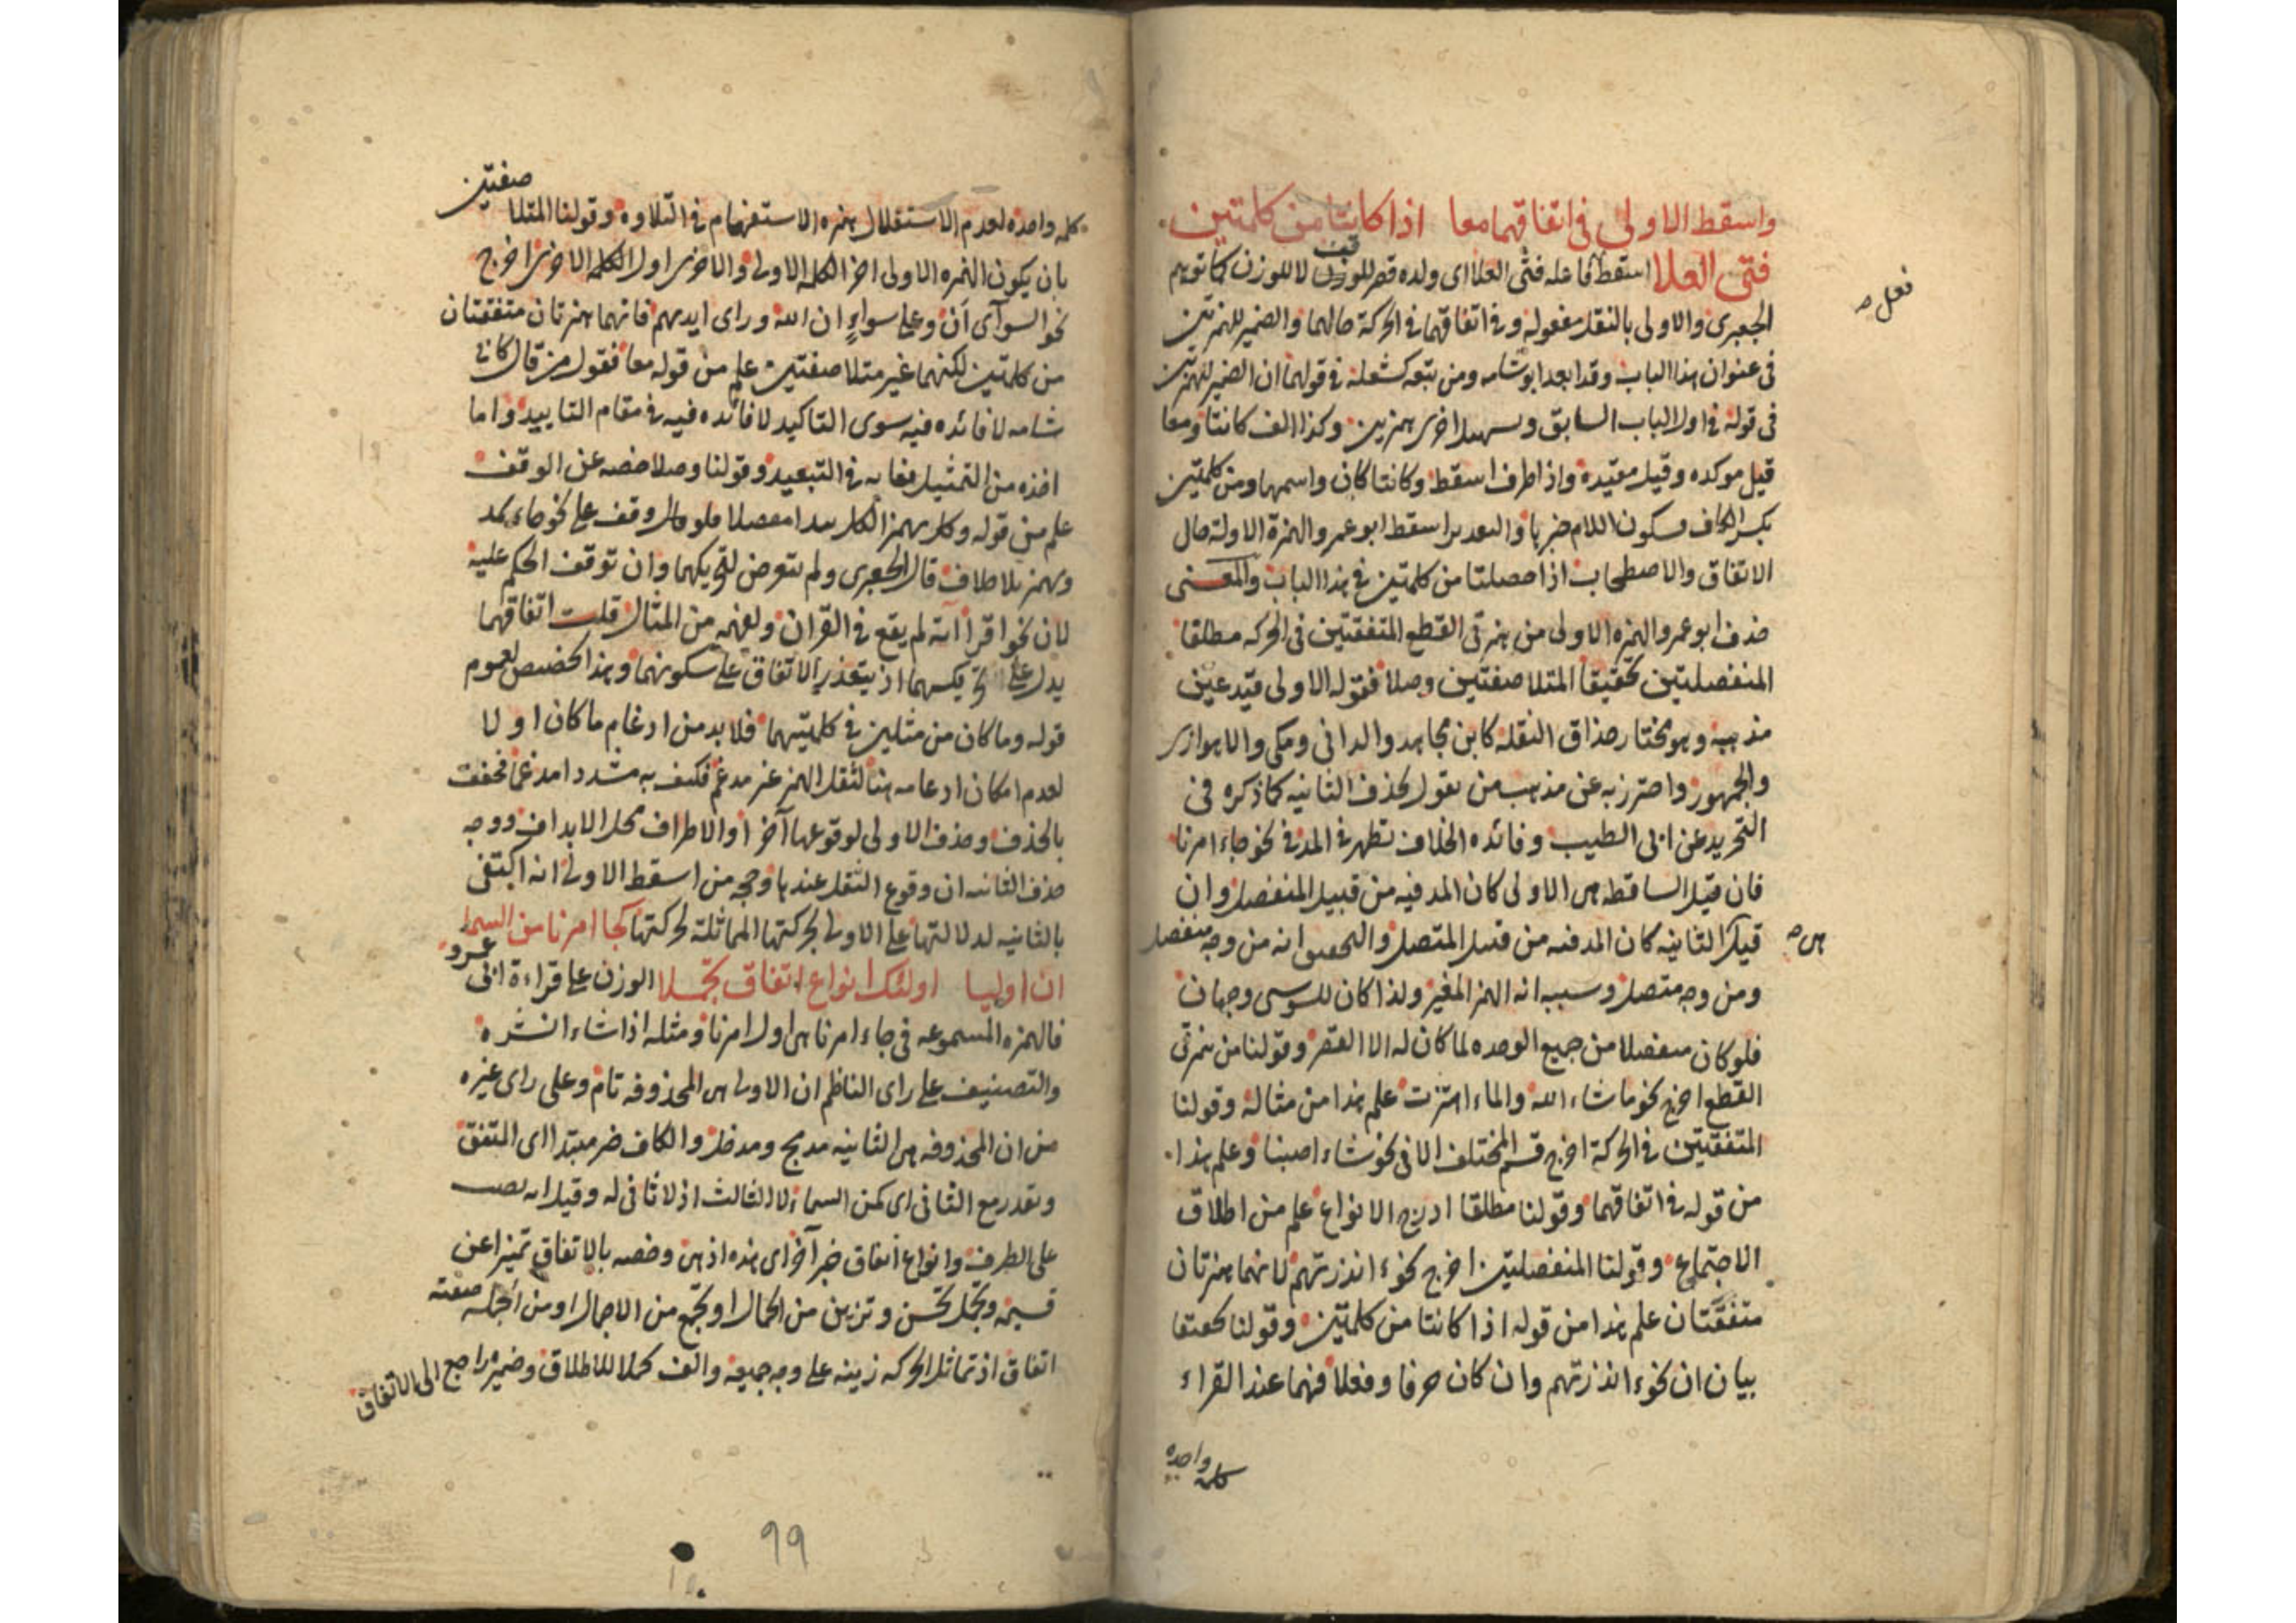 واسقط الاولى في اتفاقهما معا اذا كانتا من كلمتين
فتى العلا اسقط فاعله فتى العلا اى ولده قصر للوقف لا للوزن كما توهم
فعل صح
الجعبرى والاولى بالنقل مفعوله وفي اتفاقهما في الحركة حالهما والضمير للهمزتين
فى عنوان هذا الباب وقد ابعد ابو شامه ومن تبعه كشعلة في قولهما ان الضمير للهمزتين
فى قوله في اول الباب السابق وتسهيل اخرى همزتين وكذا الف كانتا ومعا
قيل موكده وقيل مقيدة واذا ظرف اسقط وكانتا كان واسمها ومن كلمتين
بكسر الكاف وسكون اللام خبرها والتقدير اسقط ابو عمرو الهمزة الاولة حال
الاتفاق والاصطحاب اذا حصلتا من كلمتين في هذا الباب والمعنى
حذف ابو عمرو الهمزه الاولى من همزتى القطع المتفقتين فى الحركه مطلقا
المنفصلتين تحقيقا المتلاصقتين وصلا فقوله الاولى قيد عين
مذهبه وهو مختار حذاق النقلة كابن مجاهد والدانى ومكى والاهوازى
والجمهور واحترز به عن مذهب من يقول بحذف الثانيه كما ذكره فى
التجريد عن ابى الطيب وفائده الخلاف تظهر في المد في نحو جاء امرنا
فان قيل الساقط هى الاولى كان المد فيه من قبيل المنفصل وان
قيل الثانيه كان المد فيه من قبيل المتصل والتحقيق انه من وجه منفصل
هى صح
ومن وجه متصل وسببه انه الهمز المغير ولذا كان للسوسى وجهان
فلو كان منفصلا من جميع الوحده لما كان له الا القصر وقولنا من همزتى
القطع اخرج نحو ما شاء الله والماء اهتزت علم هذا من مثاله وقولنا
المتفقتين في الحركة اخرج قسم المختلف الاتى نحو نشاء اصبنا وعلم هذا
من قوله في اتفاقهما وقولنا مطلقا ادرج الانواع علم من اطلاق
الاجتماع وقولنا المنفصلتين اخرج نحو ءانذرتهم لانهما همزتان
متفقتان علم هذا من قوله اذا كانتا من كلمتين وقولنا تحقيقا
بيان ان نحو ءانذرتهم وان كان حرفا وفعلا فهما عند القراء
كلمة واحده
كلمه واحده لعدم الاستقلال همزه الاستفهام في التلاوه وقولنا المتلاصقتين
بان يكون الهمزه الاولى اخر الكلمه الاولى والاخرى اول الكلمه الاخرى اخرج
نحو السوآى أن وعلى سواءٍ ان الله ورأى ايديهم فانهما همزتان متفقتان
من كلمتين لكنهما غير متلاصقتين علم من قوله معا فقول من قال كابى
شامه لا فائده فيه سوى التاكيد لا فائده فيه في مقام التاييد واما
اخذه من التمثيل فغايه في التبعيد وقولنا وصلا خصه عن الوقف
علم من قوله وكل بهمز الكل يبدا مفصلا فلو حال وقف على نحو جاء يمد
وبهمز بلا خلاف قال الجعبرى ولم يتعرض لتحريكهما وان توقف الحكم عليه
لان نحو اقرأ آية لم يقع في القران ولفهمه من المثال قلت اتفاقهما
يدل على تحريكهما اذ يتعذر الاتفاق على سكونهما وهذا تخصيص لعموم
قوله وما كان من مثلين في كلمتيهما فلا بد من ادغام ما كان اولا
لعدم امكان ادغامه هنا لثقل الهمز غير مدغم فكيف به مشددا مدغما فخففت
بالحذف وحذف الاولى لوقوعها آخرا والاطراف محل الابدال ووجه
حذف الثانيه ان وقوع الثقل عندها وحجه من اسقط الاولى انه اكتفى
بالثانيه لدلالتها على الاولى بحركتها المماثلة لحركتها كجا امرنا من السما
ان اوليا اولئك انواع اتفاق تجملا الوزن على قراءة ابى عمرو
فالهمزه المسموعه في جاء امرنا هى اول امرنا ومثله اذا شاء انشره
والتصنيف على راى الناظم ان الاولى هى المحذوفه تام وعلى راى غيره
من ان المحذوفه هى الثانيه مدمج ومدخل والكاف خبر مبتدا اى المتفق
ويقدر مع الثانى اى كمن السماء لا الثالث اذ لا ثانى له وقيل انه نصب
على الظرف وانواع اتفاق خبر آخر اى هذه اذ هى وخصه بالاتفاق تميزا عن
قسيمه وتجمل تحسن وتزين من الجمال او تجمع من الاجمال او من الجملة صفته
اتفاق اذ تماثل الحركه زينه على وجه جميعه والف تجملا للاطلاق وضميره راجع الى الاتفاق
٩٩